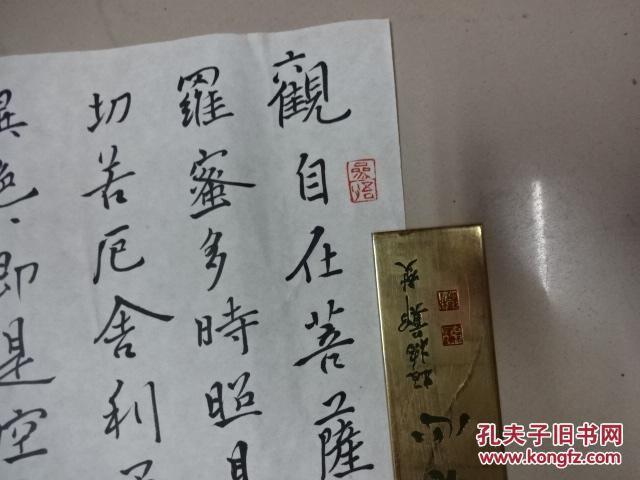 觀自在菩薩
羅蜜多時照見
切苦厄舍利子
異色色即是空
心
孔夫子旧书网
www.kongfz.com